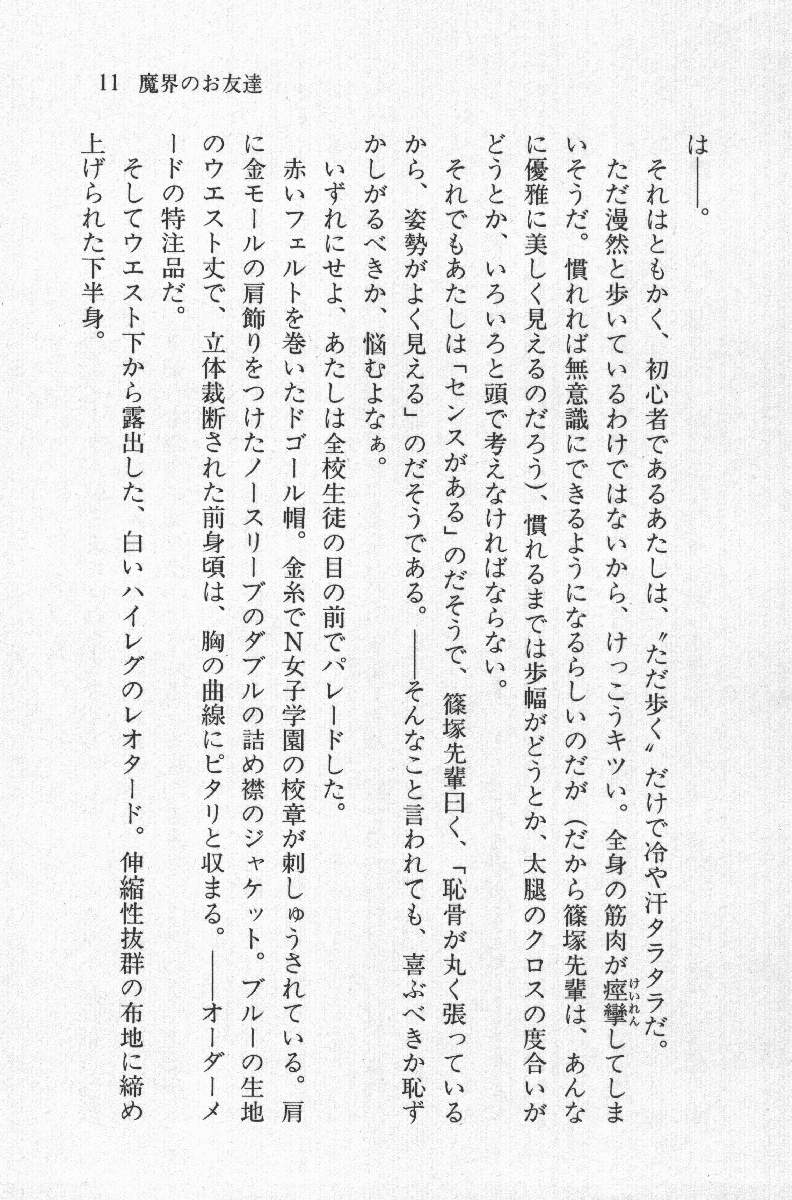 11 魔界のお友達
は――。
それはともかく、初心者であるあたしは、〝ただ歩く〟だけで冷や汗タラタラだ。
ただ漫然と歩いているわけではないから、けっこうキツい。全身の筋肉が痙攣してしま
いそうだ。慣れれば無意識にできるようになるらしいのだが（だから篠塚先輩は、あんな
に優雅に美しく見えるのだろう）、慣れるまでは歩幅がどうとか、太腿のクロスの度合いが
どうとか、いろいろと頭で考えなければならない。
それでもあたしは「センスがある」のだそうで、篠塚先輩曰く、「恥骨が丸く張っている
から、姿勢がよく見える」のだそうである。――そんなこと言われても、喜ぶべきか恥ず
かしがるべきか、悩むよなぁ。
いずれにせよ、あたしは全校生徒の目の前でパレードした。
赤いフェルトを巻いたドゴール帽。金糸でN女子学園の校章が刺しゅうされている。肩
に金モールの肩飾りをつけたノースリーブのダブルの詰め襟のジャケット。ブルーの生地
のウエスト丈で、立体裁断された前身頃は、胸の曲線にピタリと収まる。――オーダーメ
ードの特注品だ。
そしてウエスト下から露出した、白いハイレグのレオタード。伸縮性抜群の布地に締め
上げられた下半身。